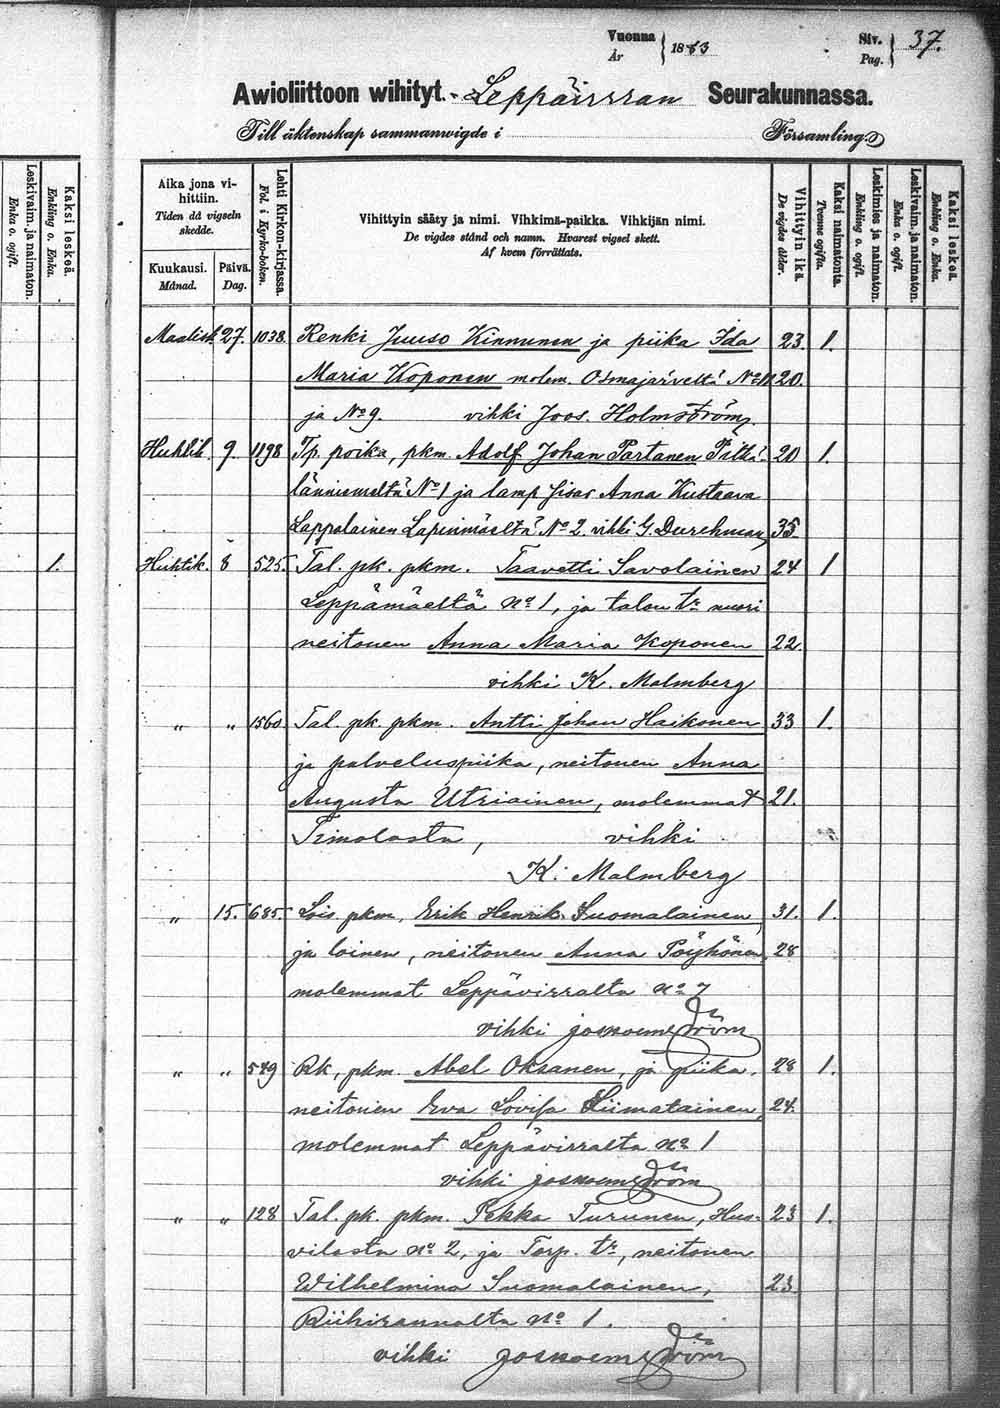 Vuonna
År
1883
Siv.
Pag.
37.
Awioliittoon wihityt. Leppävirran Seurakunnassa.
Till äktenskap sammanwigde i Församling.
Leskivaim. ja naimaton.
Enka o. ogift.
Kaksi leskeä.
Enkling o. Enka.
Aika jona vi-
hittiin.
Tiden då vigseln
skedde.
Kuukausi.
Månad.
Päivä.
Dag.
Lehti Kirkon-kirjassa.
Fol. i Kyrko-boken.
Vihittyin sääty ja nimi. Vihkimä-paikka. Vihkijän nimi.
De vigdes stånd och namn. Hvarest vigsel skett.
Af hvem förrättats.
Vihittyin ikä.
De vigdes ålder.
Kaksi naimatonta.
Tvenne ogifta.
Leskimies ja naimaton.
Enkling o. ogift.
Leskivaim. ja naimaton.
Enka o. ogift.
Kaksi leskeä.
Enkling o. Enka.
Maalisk. 27. 1038. Renki Juuso Kinnunen ja piika Ida 23. 1.
Maria Koponen molem. Osmajärveltä No 11 20.
ja No 9. vihki Joos. Holmström
Huhtik. 9. 1198 Tp. poika, pkm. Adolf Johan Partanen Pitkä- 20 1.
länniemeltä No 1 ja Anna Kustaava
Lappalainen Lapinmäeltä No 2. vihki G. Durchman 35.
1.
Huhtik. 8 525. Tal. pk. pkm. Taavetti Savolainen 24 1
Leppämäeltä No 1, ja talon tr nuori
neitonen Anna Maria Koponen 22.
vihki K. Malmberg
" " 1560 Tal. pk. pkm. Antti Johan Haikonen 33 1.
ja palveluspiika, neitonen Anna
Augusta Utriainen, molemmat 21.
Timolasta, vihki
K. Malmberg
" 15. 685. Lois. pkm. Erik Henrik Suomalainen, 31. 1.
ja loinen, neitonen Anna Pöyhönen, 28
molemmat Leppävirralta No 7
vihki Jos Holmström
" " 549 Rk, pkm. Abel Oksanen, ja piika, 28 1.
neitonen Eva Lovisa Liimatainen, 24.
molemmat Leppävirralta No 1
vihki Jos Holmström
" " 128 Tal. pk. pkm. Pekka Turunen, Hus- 23 1.
vilasta No 2, ja Torp. tr, neitonen
Wilhelmina Suomalainen, 23.
Riihirannalta No 1.
vihki Jos Holmström